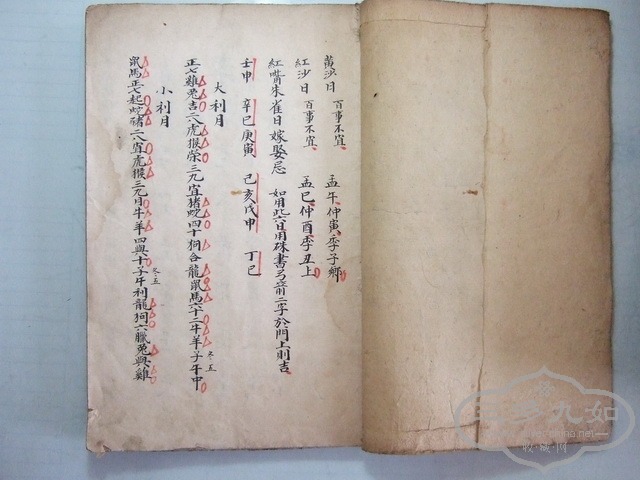 黃沙日 百事不宜 孟午仲寅季子鄉
紅沙日 百事不宜 孟巳仲酉季丑上
紅嘴朱雀日嫁娶忌 如用此六日用硃書弓箭二字於門上則吉
壬申 辛巳庚寅 己亥戊申 丁巳
大利月
正七雞兔吉二八虎猴榮三九宜豬蛇四十狗合龍鼠馬六十二牛羊子午中
冬五
小利月
鼠馬正七起蛇豬二八宜虎猴三九月牛羊四與十子午利龍狗六臘兔與雞
冬五
九如
收藏